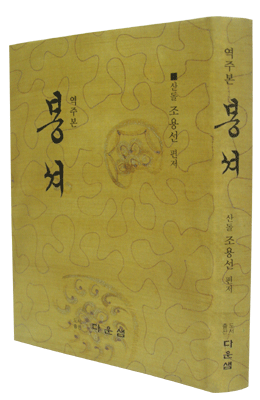 역주본
봉셔
산돌 조용선 편저
다운샘
역주본 봉셔
산돌 조용선 편저
다운샘